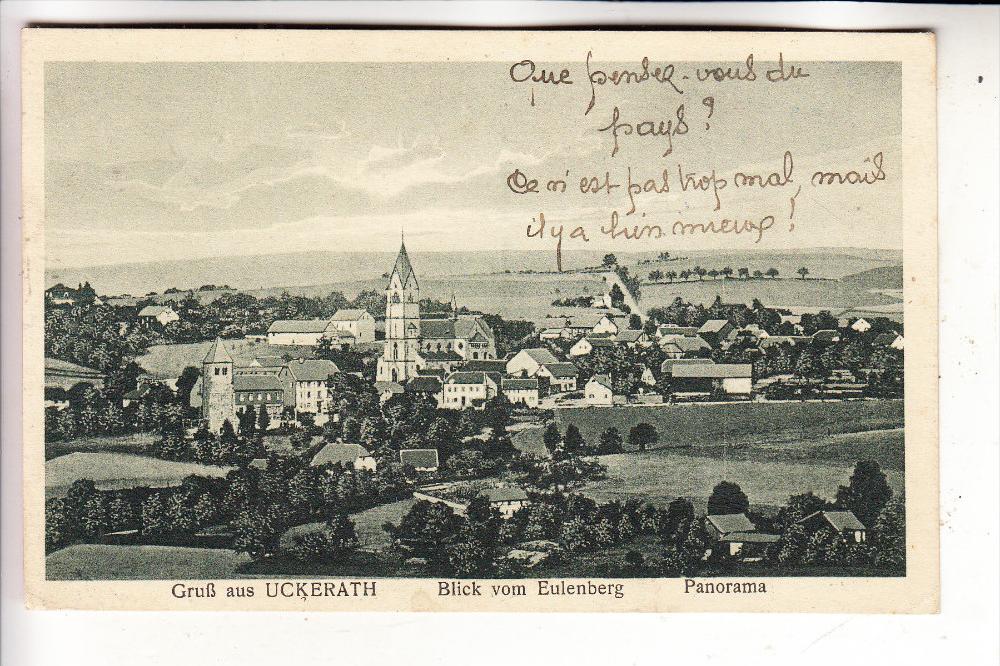 Que pensez-vous du
pays?
Ce n'est pas trop mal, mais
il y a bien mieux!
Gruß aus UCKERATH Blick vom Eulenberg Panorama